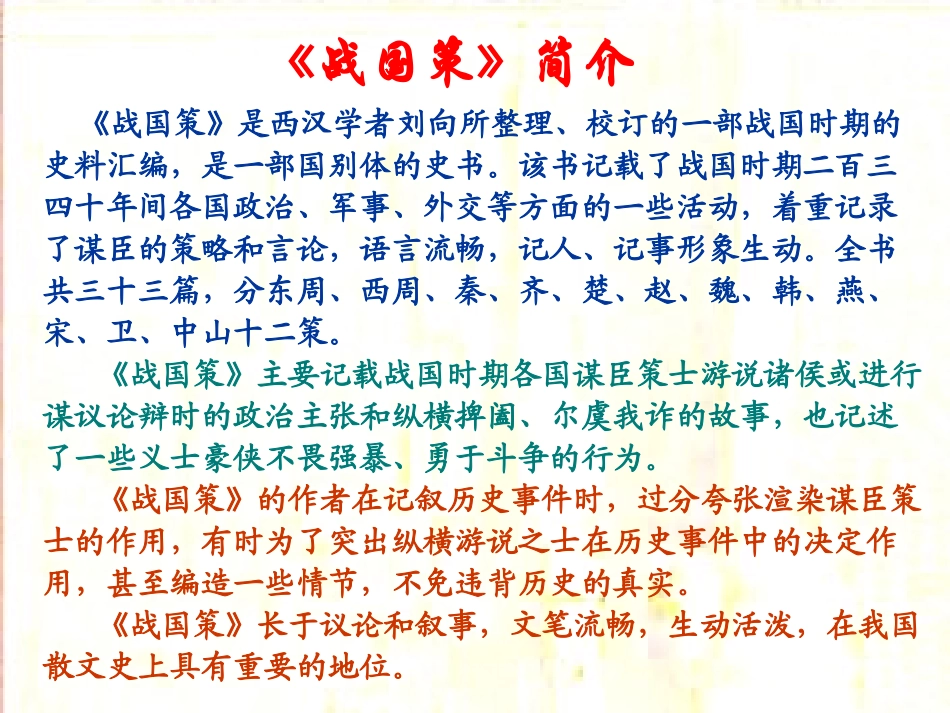 《战国策》简介
《战国策》是西汉学者刘向所整理、校订的一部战国时期的
史料汇编，是一部国别体的史书。该书记载了战国时期二百三
四十年间各国政治、军事、外交等方面的一些活动，着重记录
了谋臣的策略和言论，语言流畅，记人、记事形象生动。全书
共三十三篇，分东周、西周、秦、齐、楚、赵、魏、韩、燕、
宋、卫、中山十二策。
《战国策》主要记载战国时期各国谋臣策士游说诸侯或进行
谋议论辩时的政治主张和纵横捭阖、尔虞我诈的故事，也记述
了一些义士豪侠不畏强暴、勇于斗争的行为。
《战国策》的作者在记叙历史事件时，过分夸张渲染谋臣策
士的作用，有时为了突出纵横游说之士在历史事件中的决定作
用，甚至编造一些情节，不免违背历史的真实。
《战国策》长于议论和叙事，文笔流畅，生动活泼，在我国
散文史上具有重要的地位。